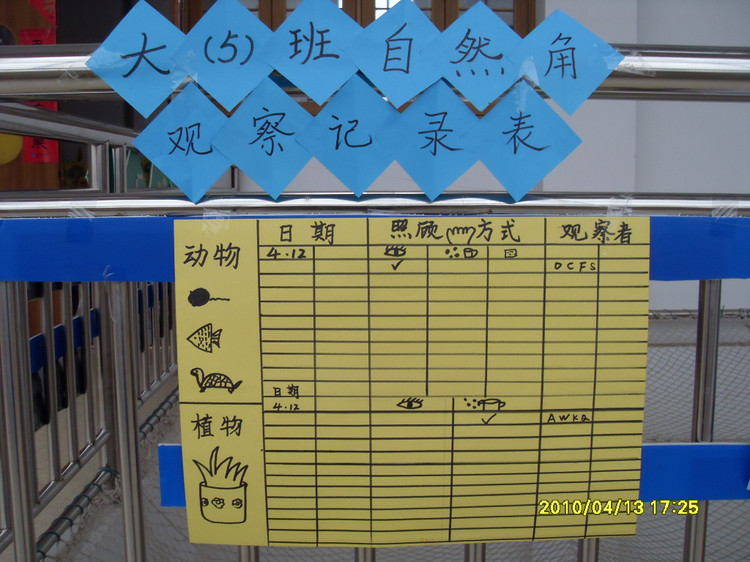 大(5)班自然角
观察记录表
动物 日期 照顾方式 观察者
4.12 ✓ OCFS
日期
4.12 ✓ AWKQ
植物
2010/04/13 17:25